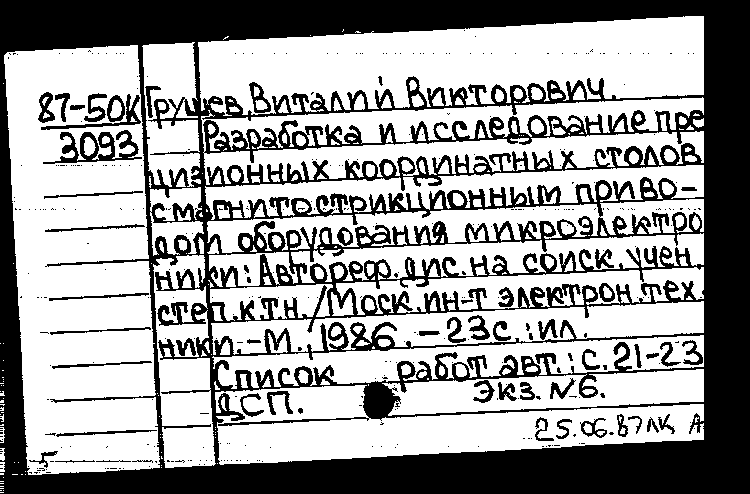 87-50К Грушев, Виталий Викторович.
3093 Разработка и исследование пре
цизионных координатных столов
с магнитострикционным приво-
дом оборудования микроэлектро
ники: Автореф. дис. на соиск. учен.
степ. к.т.н. / Моск. ин-т электрон. тех.
ники. -М., 1986. -23с.: ил.
Список работ авт.: с. 21-23
ДСП. Экз. N6.
25.06.87 А
5